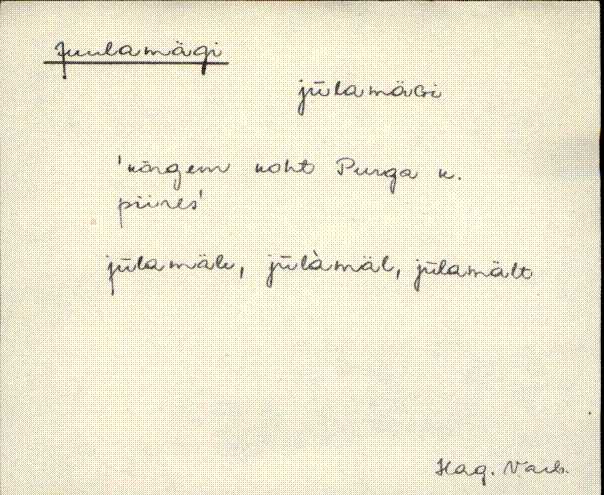 Juulamägi
jūlamäGi
'kõrgem koht Purga k.
piires'
jūlamäle, jūlàmäl, jūlamält
Hag. Varb.